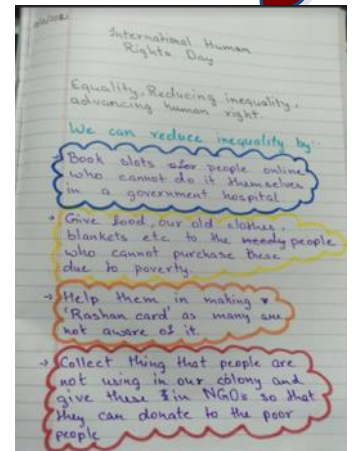 International Human
Rights Day
Equality, Reducing inequality,
advancing human right.
We can reduce inequality by:
→ Book slots for people online
who cannot do it themselves
in a government hospital
→ Give food, our old clothes,
blankets etc to the needy people
who cannot purchase these
due to poverty.
→ Help them in making
'Rashan card' as many are
not aware of it.
→ Collect thing that people are
not using in our colony and
give these in NGOs so that
they can donate to the poor
people